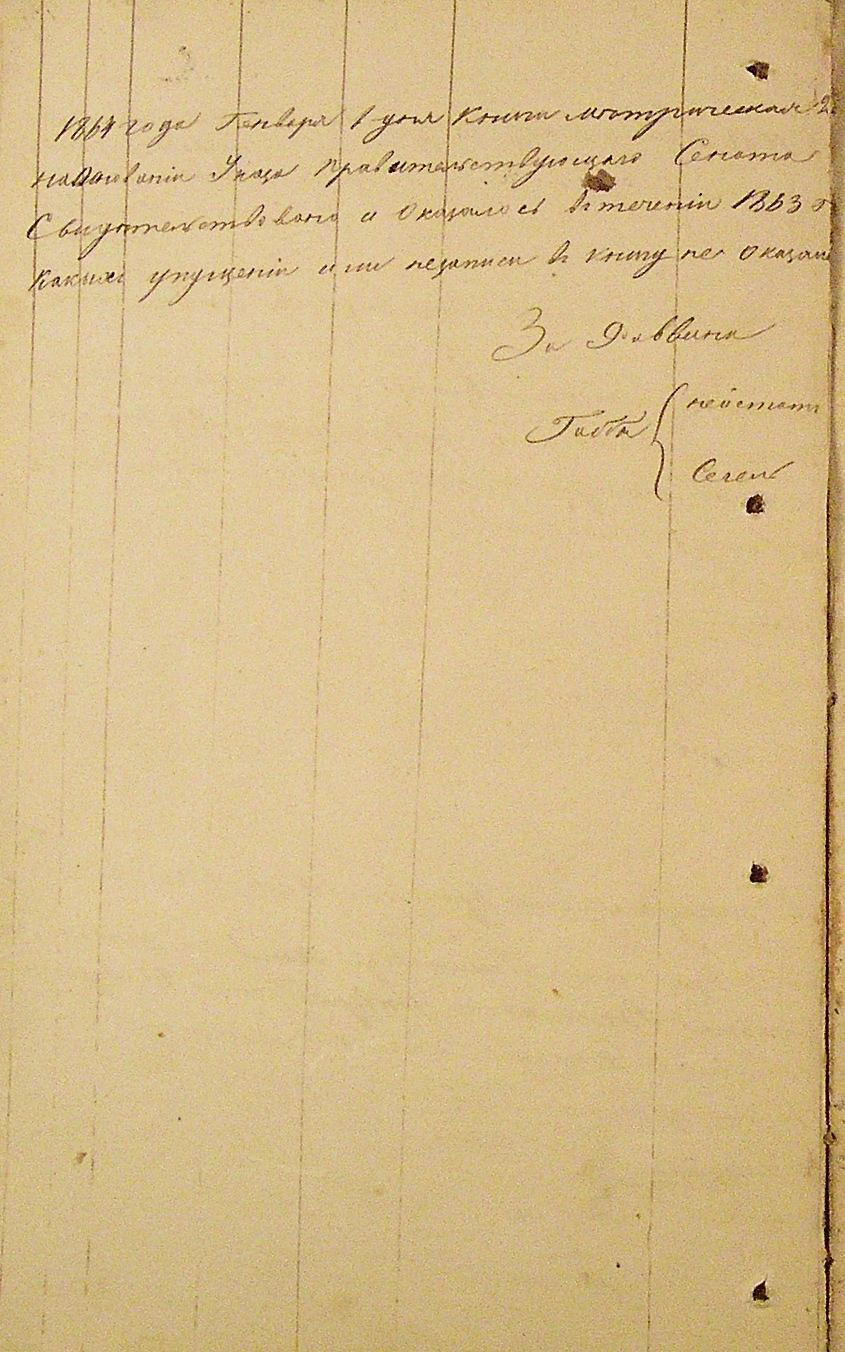 1864 года Генваря 1 дня Книга метрическая
на основаніи Указа Правительствующаго Сената
Свидѣтельствована и Оказалось втеченіи 1863 г
Какихъ упущеніи или незаписи въ книгу не Оказал
За Раввина
Габбе
Сегель